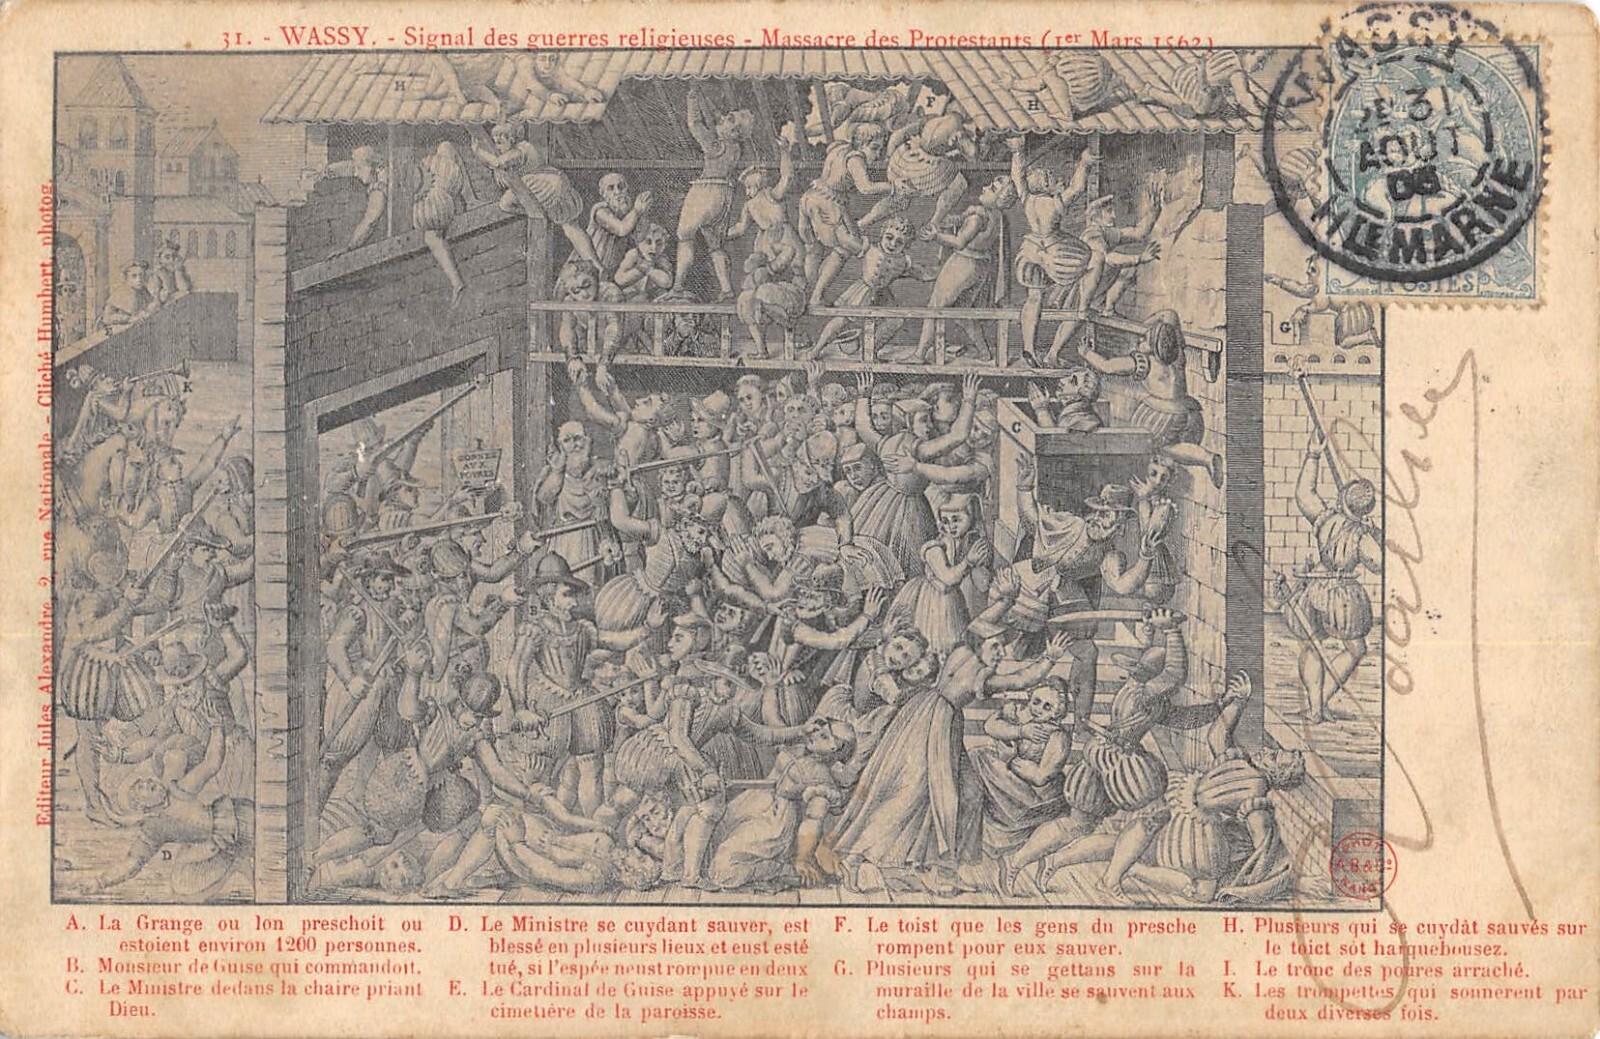 31. - WASSY. - Signal des guerres religieuses - Massacre des Protestants (1er Mars 1562)
WASSY
31
AOUT
06
Hte MARNE
POSTES
Editeur Jules Alexandre, 2, rue Nationale - Cliché Humbert, photog.
H
F
H
G
K
A
I
DONNES
AUX
POVRES
C
B
D
A. La Grange ou lon preschoit ou
estoient environ 1200 personnes.
B. Monsieur de Guise qui commandoit.
C. Le Ministre dedans la chaire priant
Dieu.
D. Le Ministre se cuydant sauver, est
blessé en plusieurs lieux et eust esté
tué, si l'espée neust rompue en deux
E. Le Cardinal de Guise appuyé sur le
cimetière de la paroisse.
F. Le toist que les gens du presche
rompent pour eux sauver.
G. Plusieurs qui se gettans sur la
muraille de la ville se sauvent aux
champs.
H. Plusieurs qui se cuydāt sauvés sur
le toict sōt harquebousez.
I. Le tronc des poures arraché.
K. Les trompettes qui sonnerent par
deux diverses fois.